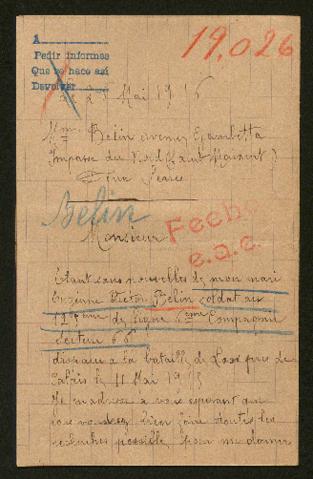 A
Pedir informes
Que se hace así
Devolver
19.026
le 25 Mai 1916
Mme Belin avenue Gambetta
Impasse du Nord (Saint Maixent)
Deux Sèvres
Belin
Fecha
e.a.c.
Monsieur
Etant sans nouvelles de mon mari
Eugène Victor Belin soldat au
125 ème de ligne 6 ème Compagnie
secteur 66
disparu a la bataille de Loos près de
Calais le 11 Mai 1915
Je madresse a vous esperant que
vous voudrez bien faire toutes les
recherches possible pour me donner